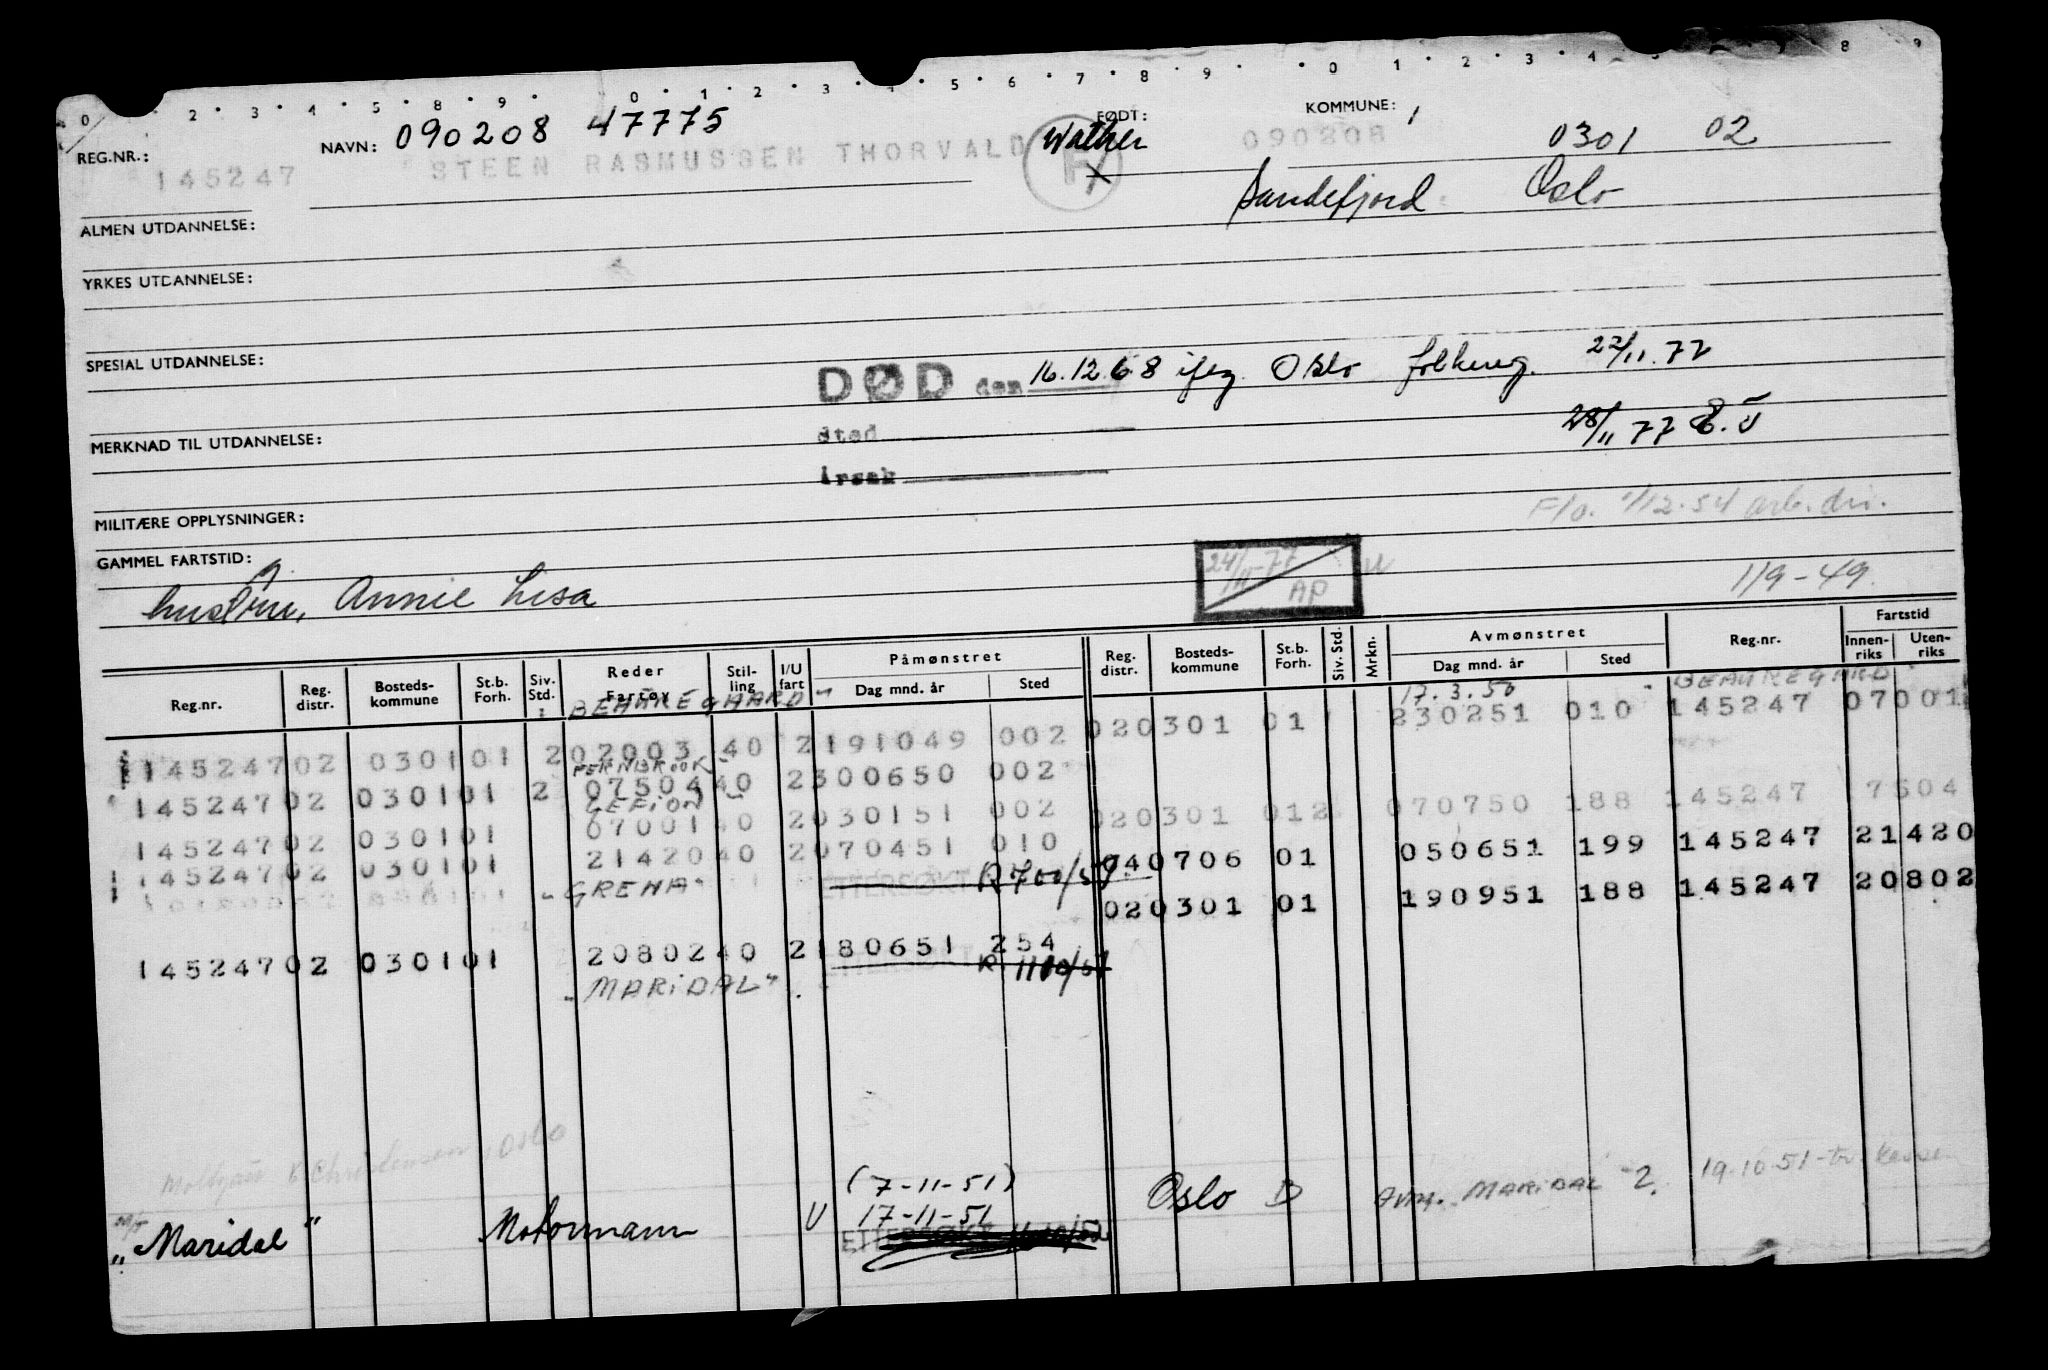 0 2 3 4 5 8 9 0 1 2 3 4 5 6 7 8 9 0 1 2 3 4 5 8 9
REG.NR.: NAVN: 090208 47775 FØDT: KOMMUNE: 1
145247 STEEN RASMUSSEN THORVALD Walther 090208 0301 02
Sandefjord Oslo
ALMEN UTDANNELSE:
YRKES UTDANNELSE:
SPESIAL UTDANNELSE:
DØD den 16.12.68 iflg. Oslo folkereg. 22/11.77
Sted
28/11 77
MERKNAD TIL UTDANNELSE:
Årsak
MILITÆRE OPPLYSNINGER:
F/o. 1/12.54 arb.dir.
GAMMEL FARTSTID:
24/11-77 AP
hustru, Annie Lisa
1/9-49
Reg.nr. Reg. distr. Bosteds-kommune St.b. Forh. Siv. Std. Reder Fartøy Stil-ling I/U fart Påmønstret Dag mnd. år Sted Reg. distr. Bosteds-kommune St.b. Forh. Siv. Std. Mrkn. Avmønstret Dag mnd. år Sted Reg.nr. Fartstid Innen-riks Uten-riks
BEAUREGAARD" 17.3.50 BEAUREGARD"
145247 02 0301 01 2 02003 40 2 191049 002 02 0301 01 230251 010 145247 07001
FERNBROOK"
145247 02 0301 01 2 07504 40 2 300650 002
GEFION"
145247 02 0301 01 07001 40 2 030151 002 02 0301 012 070750 188 145247 7504
145247 02 0301 01 21420 40 2 070451 010 04 0706 01 050651 199 145247 21420
"GRENA" ETTERSØKT R 700/51 02 0301 01 190951 188 145247 20802
145247 02 0301 01 20802 40 2 180651 254
"MARIDAL" R 1100/51
Christensen, Oslo
(7-11-51)
M/T "Maridal" Motormann U 17-11-51 Oslo D Avm. MARIDAL 2. 19.10.51
ETTERSØKT